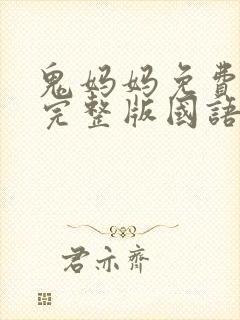 鬼妈妈免費
完整版國語
君亦齊